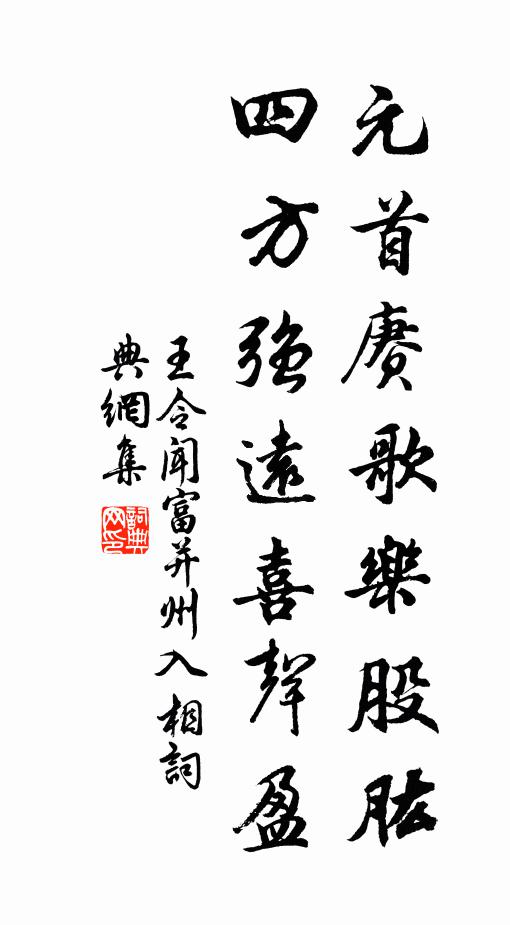 元首賡歌樂股肱
四方強遠喜聲盈
王令聞富并州入相詞
典網集
詞典
网印